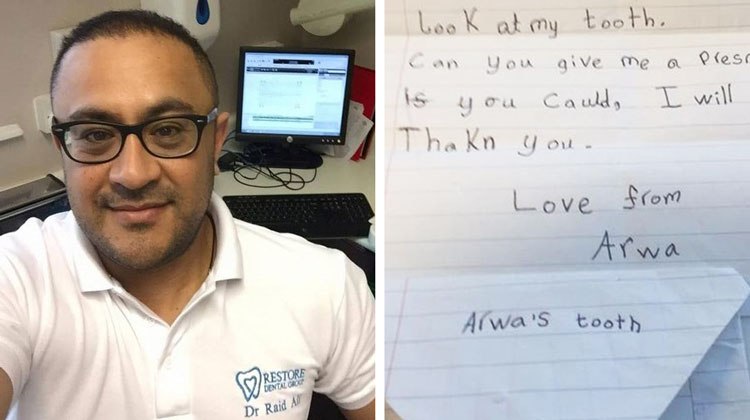 RESTORE
DENTAL GROUP
Dr Raid
Look at my tooth.
Can you give me a
Is you Cauld, I will
Thakn you.
Love from
Arwa
Arwa's tooth